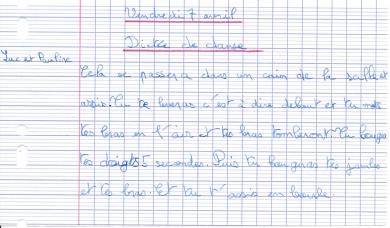 Vendredi 7 avril
Dictée de danse
Luc et Pauline
Cela se passera dans un coin de la salle et
assis. Tu te lèveras c'est à dire debout et tu mets
tes bras en l'air et tes bras tomberont. Tu bouges
tes doigts 5 secondes. Puis tu bougeras tes jambes
et tes bras. Et tu t'assis en boule.